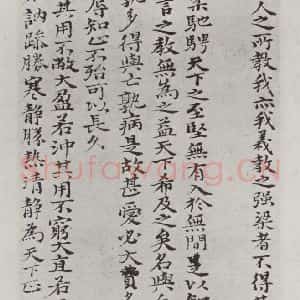 人之所教我亦我義教之强梁者不得
柔馳騁天下之至堅無有入於無間是以
言之教無為之益天下希及之矣名與
孰多得與亡孰病是故甚愛必大費多
辱知止不殆可以長久
其用不敝大盈若沖其用不窮大直若
訥躁勝寒靜勝熱清靜為天下正
Shufawang.CN